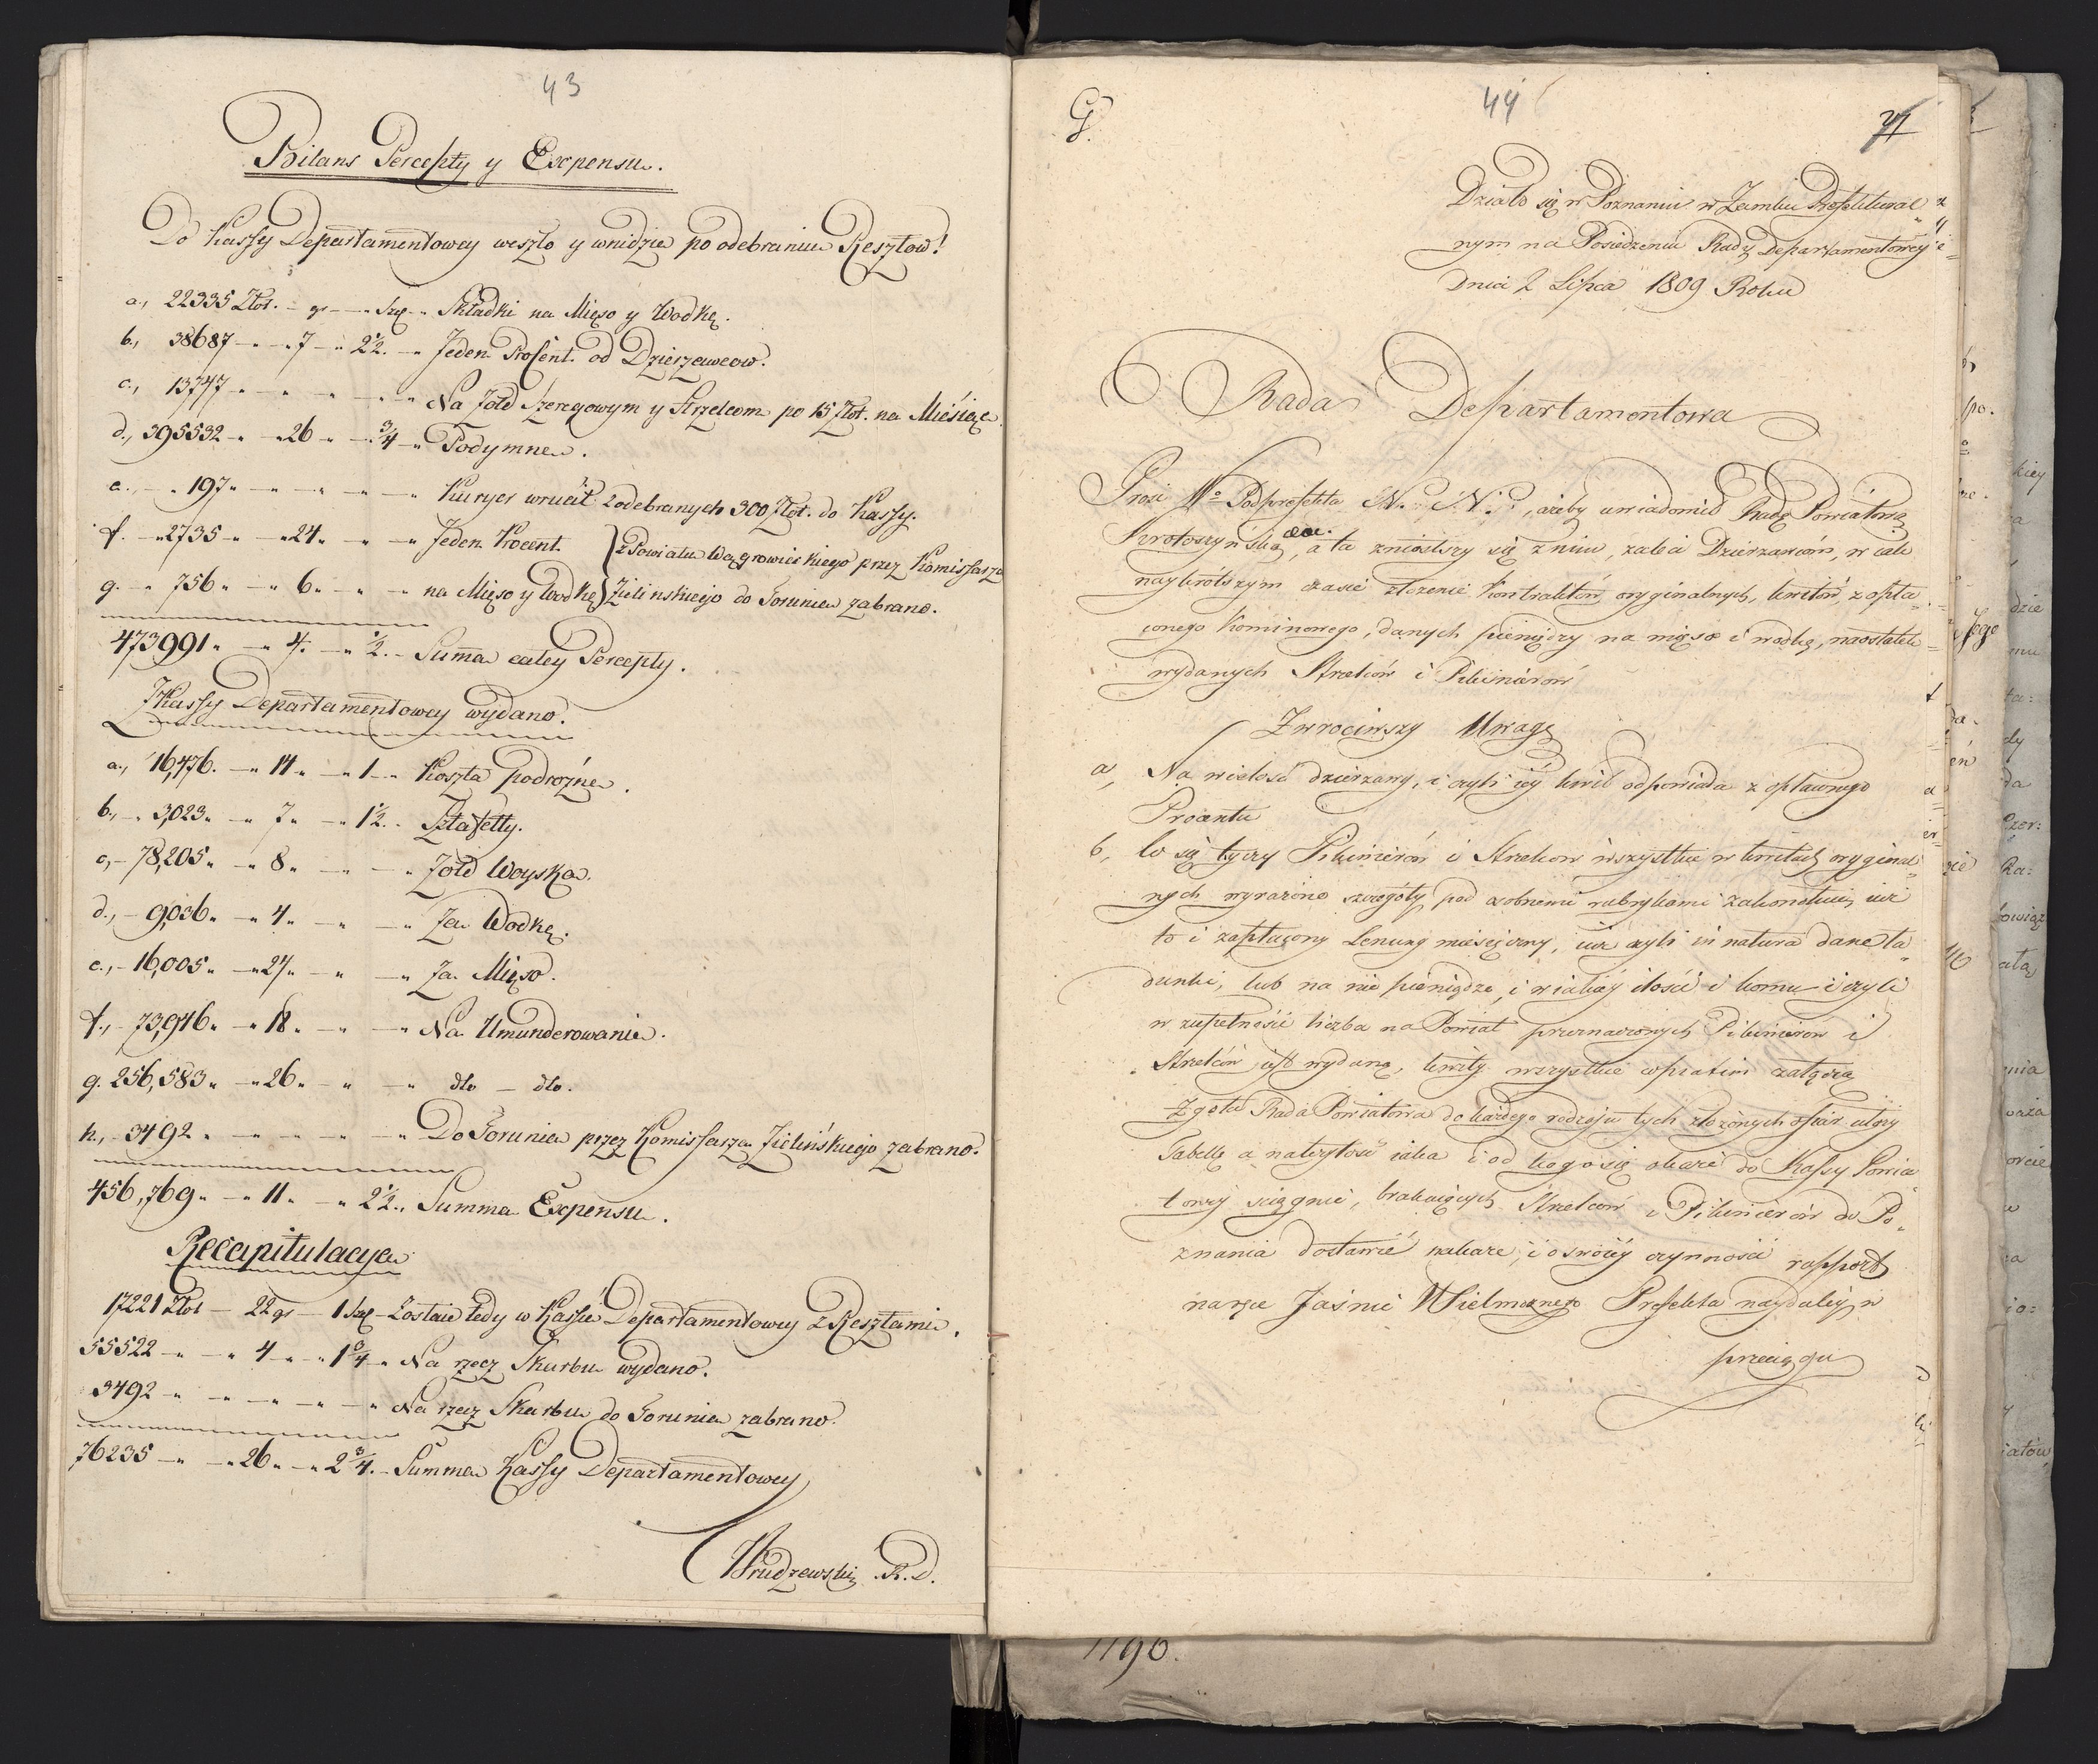 43
Bilans Percepty y Expensu.
Do Kassy Departamentowey weszło y wnidzie po odebraniu Resztow!
a., 22335 Złot. - gr - - Szel. - Składki na Mięso y Wodkę.
b., 38687 - - 7 - 2½. - Jeden Procent. od Dzierzawcow.
c., 13747 - - - - - Na Żołd Szeregowym y Strzelcom po 15 Złot. na Miésiąc.
d., 395532 - - 26 - - ¾ - Podymne.
e., - 197 - - - - - Kuryer wrucił z odebranych 300 Złot. do Kassy.
f. - 2735 - - 24 - - - Jeden Procent. } z Powiatu Wągrowieckiego przez Komissarza
g. - 756 - - 6 - - - na Mięso y Wodkę } Zielinskiego do Torunia zabrano.
473991 - - 4. - ½. - Suma całey Percepty.
Z Kassy Departamentowey wydano.
a., 16,476. - 14 - - 1 - Koszta podrożne.
b., - 3,023 - - 7 - - 1½. - Sztafetty.
c, - 78,205 - - 8 - - - Żołd Woyska.
d., - 9,036 - - 4 - - - Za Wodkę.
e., - 16,005 - - 27 - - - Za Mięso.
f., - 73,946 - - 18 - - - Na Umunderowanie.
g. 256,583 - - 26 - - - dto - dto.
h., - 3492 - - - - - Do Torunia przez Komissarza Zielińskiego zabrano.
456,769 - - 11 - - 2½. - Summa Expensu.
Recapitulacya
17221 Złot - 22 gr - 1 Szel - Zostaie tedy w Kassie Departamentowey z Resztami.
55522 - - 4 - - 1¾ - Na rzecz Skarbu wydano.
3492 - - - - - Na rzecz Skarbu do Torunia zabrano.
76235 - - 26 - - 2¾. - Summa Kassy Departamentowey
Prudzewski R. D.
44
G.
Działo się w Poznaniu w Zamku Prefektural
nym na Posiedzeniu Rady Departamentowey
Dnia 2 Lipca 1809 Roku
Rada Departamentowa
Prosi Wo Podprefekta N. N., ażeby uwiadomił Radę Powiatową
Krotoszyńską, a ta zniosłszy się z nim, zaleci Dzierzawcóm, w iak
naykrótszym czasie złożenie Kontraktów oryginalnych, kwitów z opła
conego Kominowego, danych pieniędzy na mięso i wodkę, naostatek
wydanych Strzelców i Pikinierów
Zwrociwszy Uwagę
a, Na wielość dzierzawy, i czyli iéy kwit odpowiada z opłaconego
Procentu
b, Co się tyczy Pikinierów i Strzelcow wszystkie w kwitach oryginal
nych wyrażone szczegóły pod osobnemi rubrykami zakonotuie, iuż
to i zapłacony Lenung miesięczny, iuż czyli in natura dane ła
dunki, lub na nie pieniądze, i w iakiéy ilości i komu i czyli
w zupełności liczba na Powiat przeznaczonych Pikinierów i
Strzelców iest wydaną, kwity wszystkie w prafim załączą
Zgoła Rada Powiatowa do każdego rodzaju tych złożonych ofiar ułoży
Tabellę a należytość iaka i od kogo się okaże do Kassy Powia
towéy ściągnie, brakuiących Strzelców i Pikinierów do Po
znania dostawić nakaże, i o swoiéy czynności rapport
na ręce Jaśnie Wielmożnego Prefekta naydaléy w
przeciągu
1190.